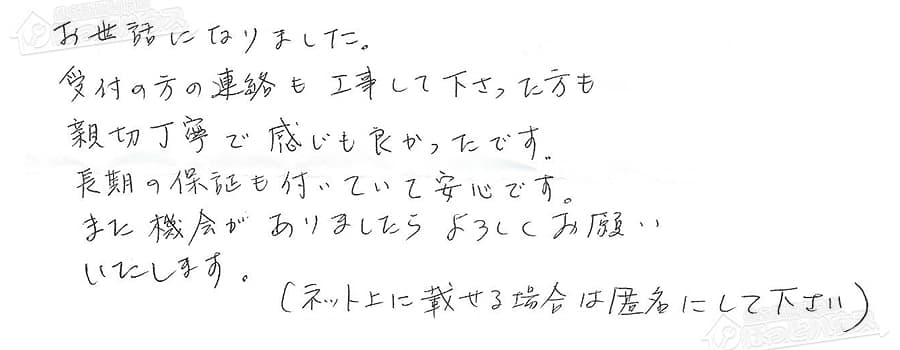 お世話になりました。
受付の方の連絡も工事して下さった方も
親切丁寧で感じも良かったです。
長期の保証も付いていて安心です。
また機会がありましたらよろしくお願い
いたします。
(ネット上に載せる場合は匿名にして下さい)